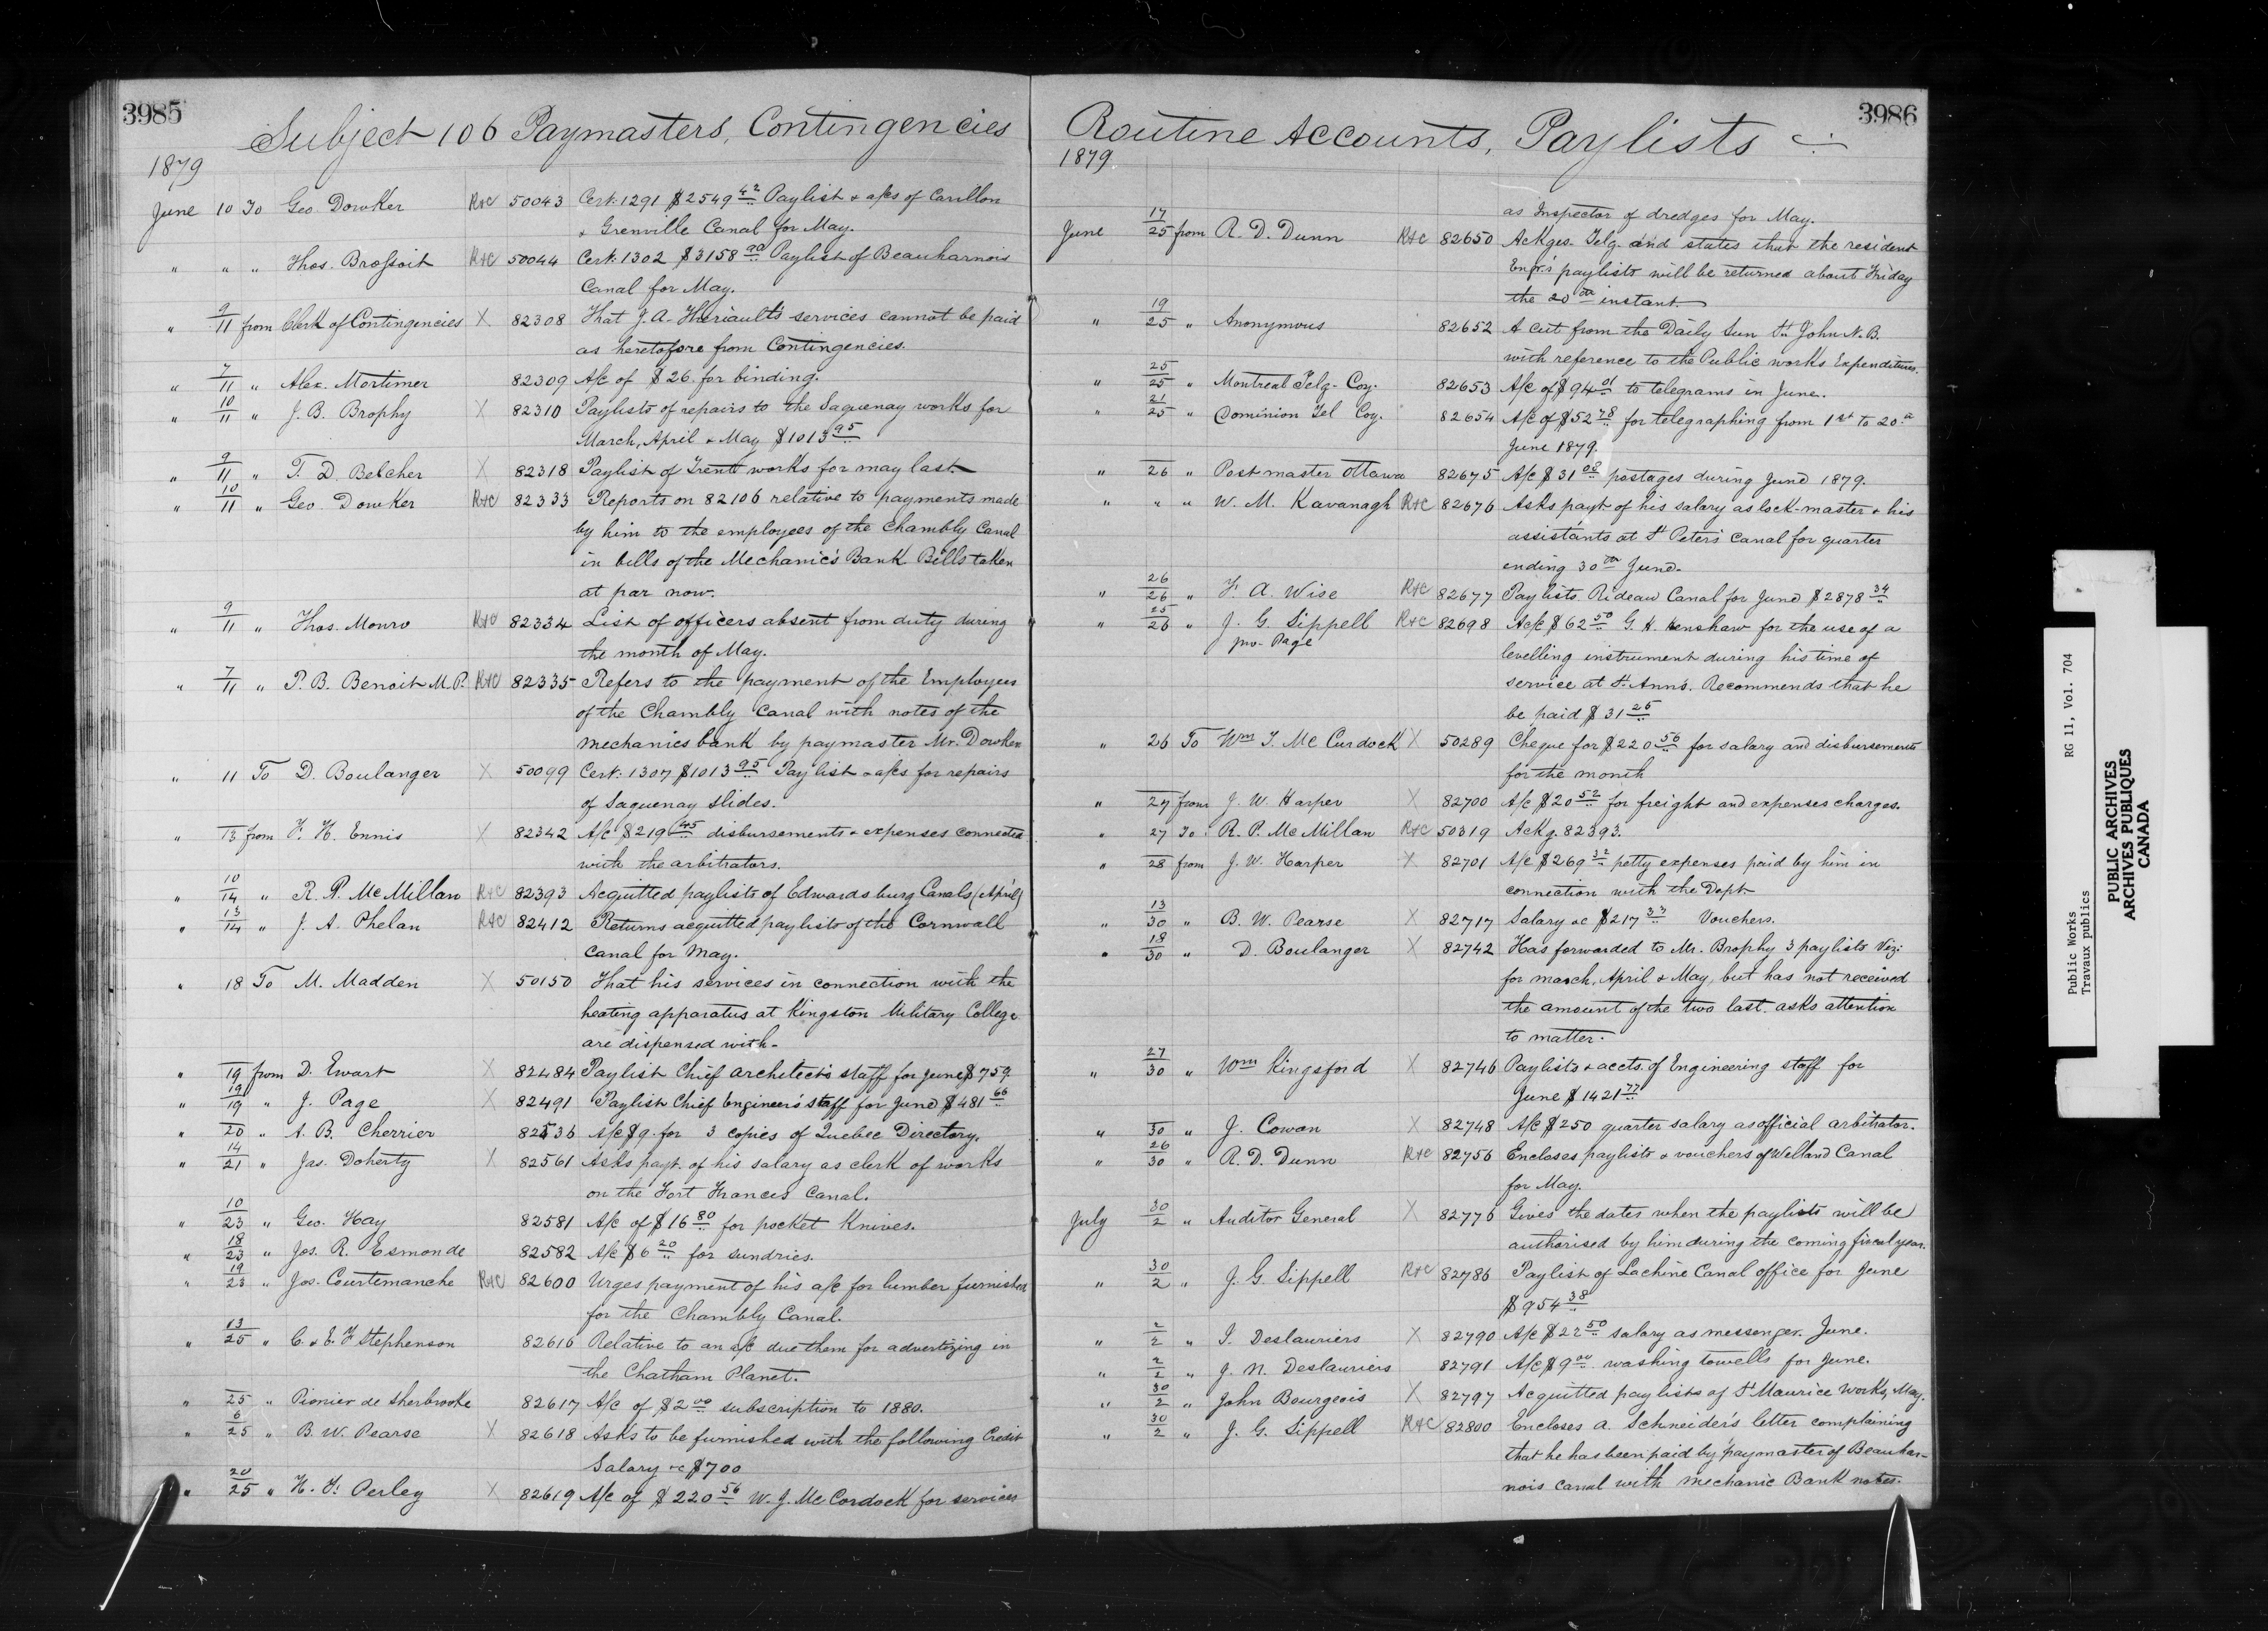 3985
Subject 106 Paymasters, Contingencies
1879
June 10 To Geo Dowker R&C 50043 Cert. 1291 $2549 42 Paylist & a/cs of Carillon
& Grenville Canal for May.
" " " Thos. Brossoit R&C 50044 Cert. 1302 $3158 90 Paylist of Beauharnois
Canal for May.
" 9/11 from Clerk of Contingencies X 82308 That J. A. Theriault's services cannot be paid
as heretofore from Contingencies.
" 7/11 " Alex. Mortimer 82309 A/c of $26. for binding.
" 10/11 " J. B. Brophy X 82310 Paylists of repairs to the Saguenay works for
March, April & May $1013 95
" 9/11 " T. D. Belcher X 82318 Paylist of Trent works for may last.
" 10/11 " Geo. Dowker R&C 82333 Reports on 82106 relative to payments made
by him to the employees of the Chambly Canal
in bills of the Mechanic's Bank. Bills taken
at par now.
" 9/11 " Thos. Monro R&C 82334 List of officers absent from duty during
the month of May.
" 7/11 " P. B. Benoit M.P. R&C 82335 Refers to the payment of the Employees
of the Chambly Canal with notes of the
mechanics bank by paymaster Mr. Dowker
" 11 To D. Boulanger X 50099 Cert. 1307 $1013 95 Paylist & a/cs for repairs
of Saguenay slides.
" 13 from F. H. Ennis X 82342 A/c $219 45 disbursements & expenses connected
with the arbitrators.
" 10/14 " R. P. McMillan R&C 82393 Acquitted paylists of Edwardsburg Canals (April)
" 13/14 " J. A. Phelan R&C 82412 Returns acquitted paylists of the Cornwall
Canal for May.
" 18 To M. Madden X 50150 That his services in connection with the
heating apparatus at Kingston Military College
are dispensed with.
" 19 from D. Ewart X 82484 Paylist Chief Architect's staff for June $759
" 19/19 " J. Page X 82491 Paylist Chief Engineer's staff for June $481 66
" 20 " A. B. Cherrier 82536 A/c $9. for 3 copies of Quebec Directory.
" 14/21 " Jas. Doherty X 82561 Asks payt. of his salary as clerk of works
on the Fort Frances Canal.
" 10/23 " Geo. Hay 82581 A/c of $16 80 for pocket Knives.
" 18/23 " Jos. R. Esmonde 82582 A/c $6 20 for sundries.
" 19/23 " Jos. Courtemanche R&C 82600 Urges payment of his a/c for lumber furnished
for the Chambly Canal.
" 13/25 " C. & E. F Stephenson 82616 Relative to an a/c due them for advertizing in
the Chatham Planet.
" 25 " Pionier de Sherbrooke 82617 A/c of $2 00 subscription to 1880.
" 6/25 " B. W. Pearse X 82618 Asks to be furnished with the following Credit
Salary &c $700
" 20/25 " H. F. Perley X 82619 A/c of $220 56 W. J. McCordock for services
3986
Routine Accounts, Paylists &c
1879
as Inspector of dredges for May.
June 17/25 from R. D. Dunn R&C 82650 Ackges. Telg. and states that the resident
Engr.'s paylists will be returned about Friday
the 20th instant.
" 19/25 " Anonymous 82652 A cut from the Daily Sun St John N.B.
with reference to the Public works Expenditures.
" 25/25 " Montreal Telg. Coy. 82653 A/c of $94 01 to telegrams in June.
" 21/25 " Dominion Tel Coy. 82654 A/c of $52 78 for telegraphing from 1st to 20th
June 1879.
" 26 " Postmaster Ottawa 82675 A/c $31 08 postages during June 1879.
" " " W. M. Kavanagh R&C 82676 Asks payt of his salary as lock-master & his
assistants at St Peters Canal for quarter
ending 30th June.
" 26/26 " F. A. Wise R&C 82677 Paylists Rideau Canal for June $2878 34
" 25/26 " J. G. Sippell R&C 82698 A/c $62 50 G. H. Henshaw for the use of a
Jno. Page levelling instrument during his time of
service at St. Ann's. Recommends that he
be paid $31 25
" 26 To Wm J. McCurdock X 50289 Cheque for $220 56 for salary and disbursements
for the month
" 27 from J. W. Harper X 82700 A/c $20 52 for freight and expenses charges.
" 27 To R. P. McMillan R&C 50319 Ackg. 82393.
" 28 from J. W. Harper X 82701 A/c $269 32 petty expenses paid by him in
connection with the Dept
" 13/30 " B. W. Pearse X 82717 Salary &c $217 33 Vouchers.
" 18/30 " D. Boulanger X 82742 Has forwarded to Mr. Brophy 3 paylists Viz:
for march, April & May, but has not received
the amount of the two last. asks attention
to matter.
" 27/30 " Wm Kingsford X 82746 Paylists & accts. of Engineering staff for
June $1421 77
" 30 " J. Cowan X 82748 A/c $250 quarter salary as official arbitrator.
" 26/30 " R. D. Dunn R&C 82756 Encloses paylists & vouchers of Welland Canal
for May.
July 30/2 " Auditor General X 82776 Gives the dates when the paylists will be
authorised by him during the coming fiscal year.
" 30/2 " J. G. Sippell R&C 82786 Paylist of Lachine Canal office for June
$954 38
" 2/2 " I. Deslauriers X 82790 A/c $22 50 salary as messenger. June.
" 2/2 " J. N. Deslauriers 82791 A/c $9 00 washing towells for June.
" 30/2 " John Bourgeois X 82797 Acquitted paylists of St Maurice works, May.
" 30/2 " J. G. Sippell R&C 82800 Encloses A. Schneider's letter complaining
that he has been paid by paymaster of Beauhar-
nois Canal with mechanic Bank notes.
Public Works RG 11, Vol. 704
Travaux publics
PUBLIC ARCHIVES
ARCHIVES PUBLIQUES
CANADA